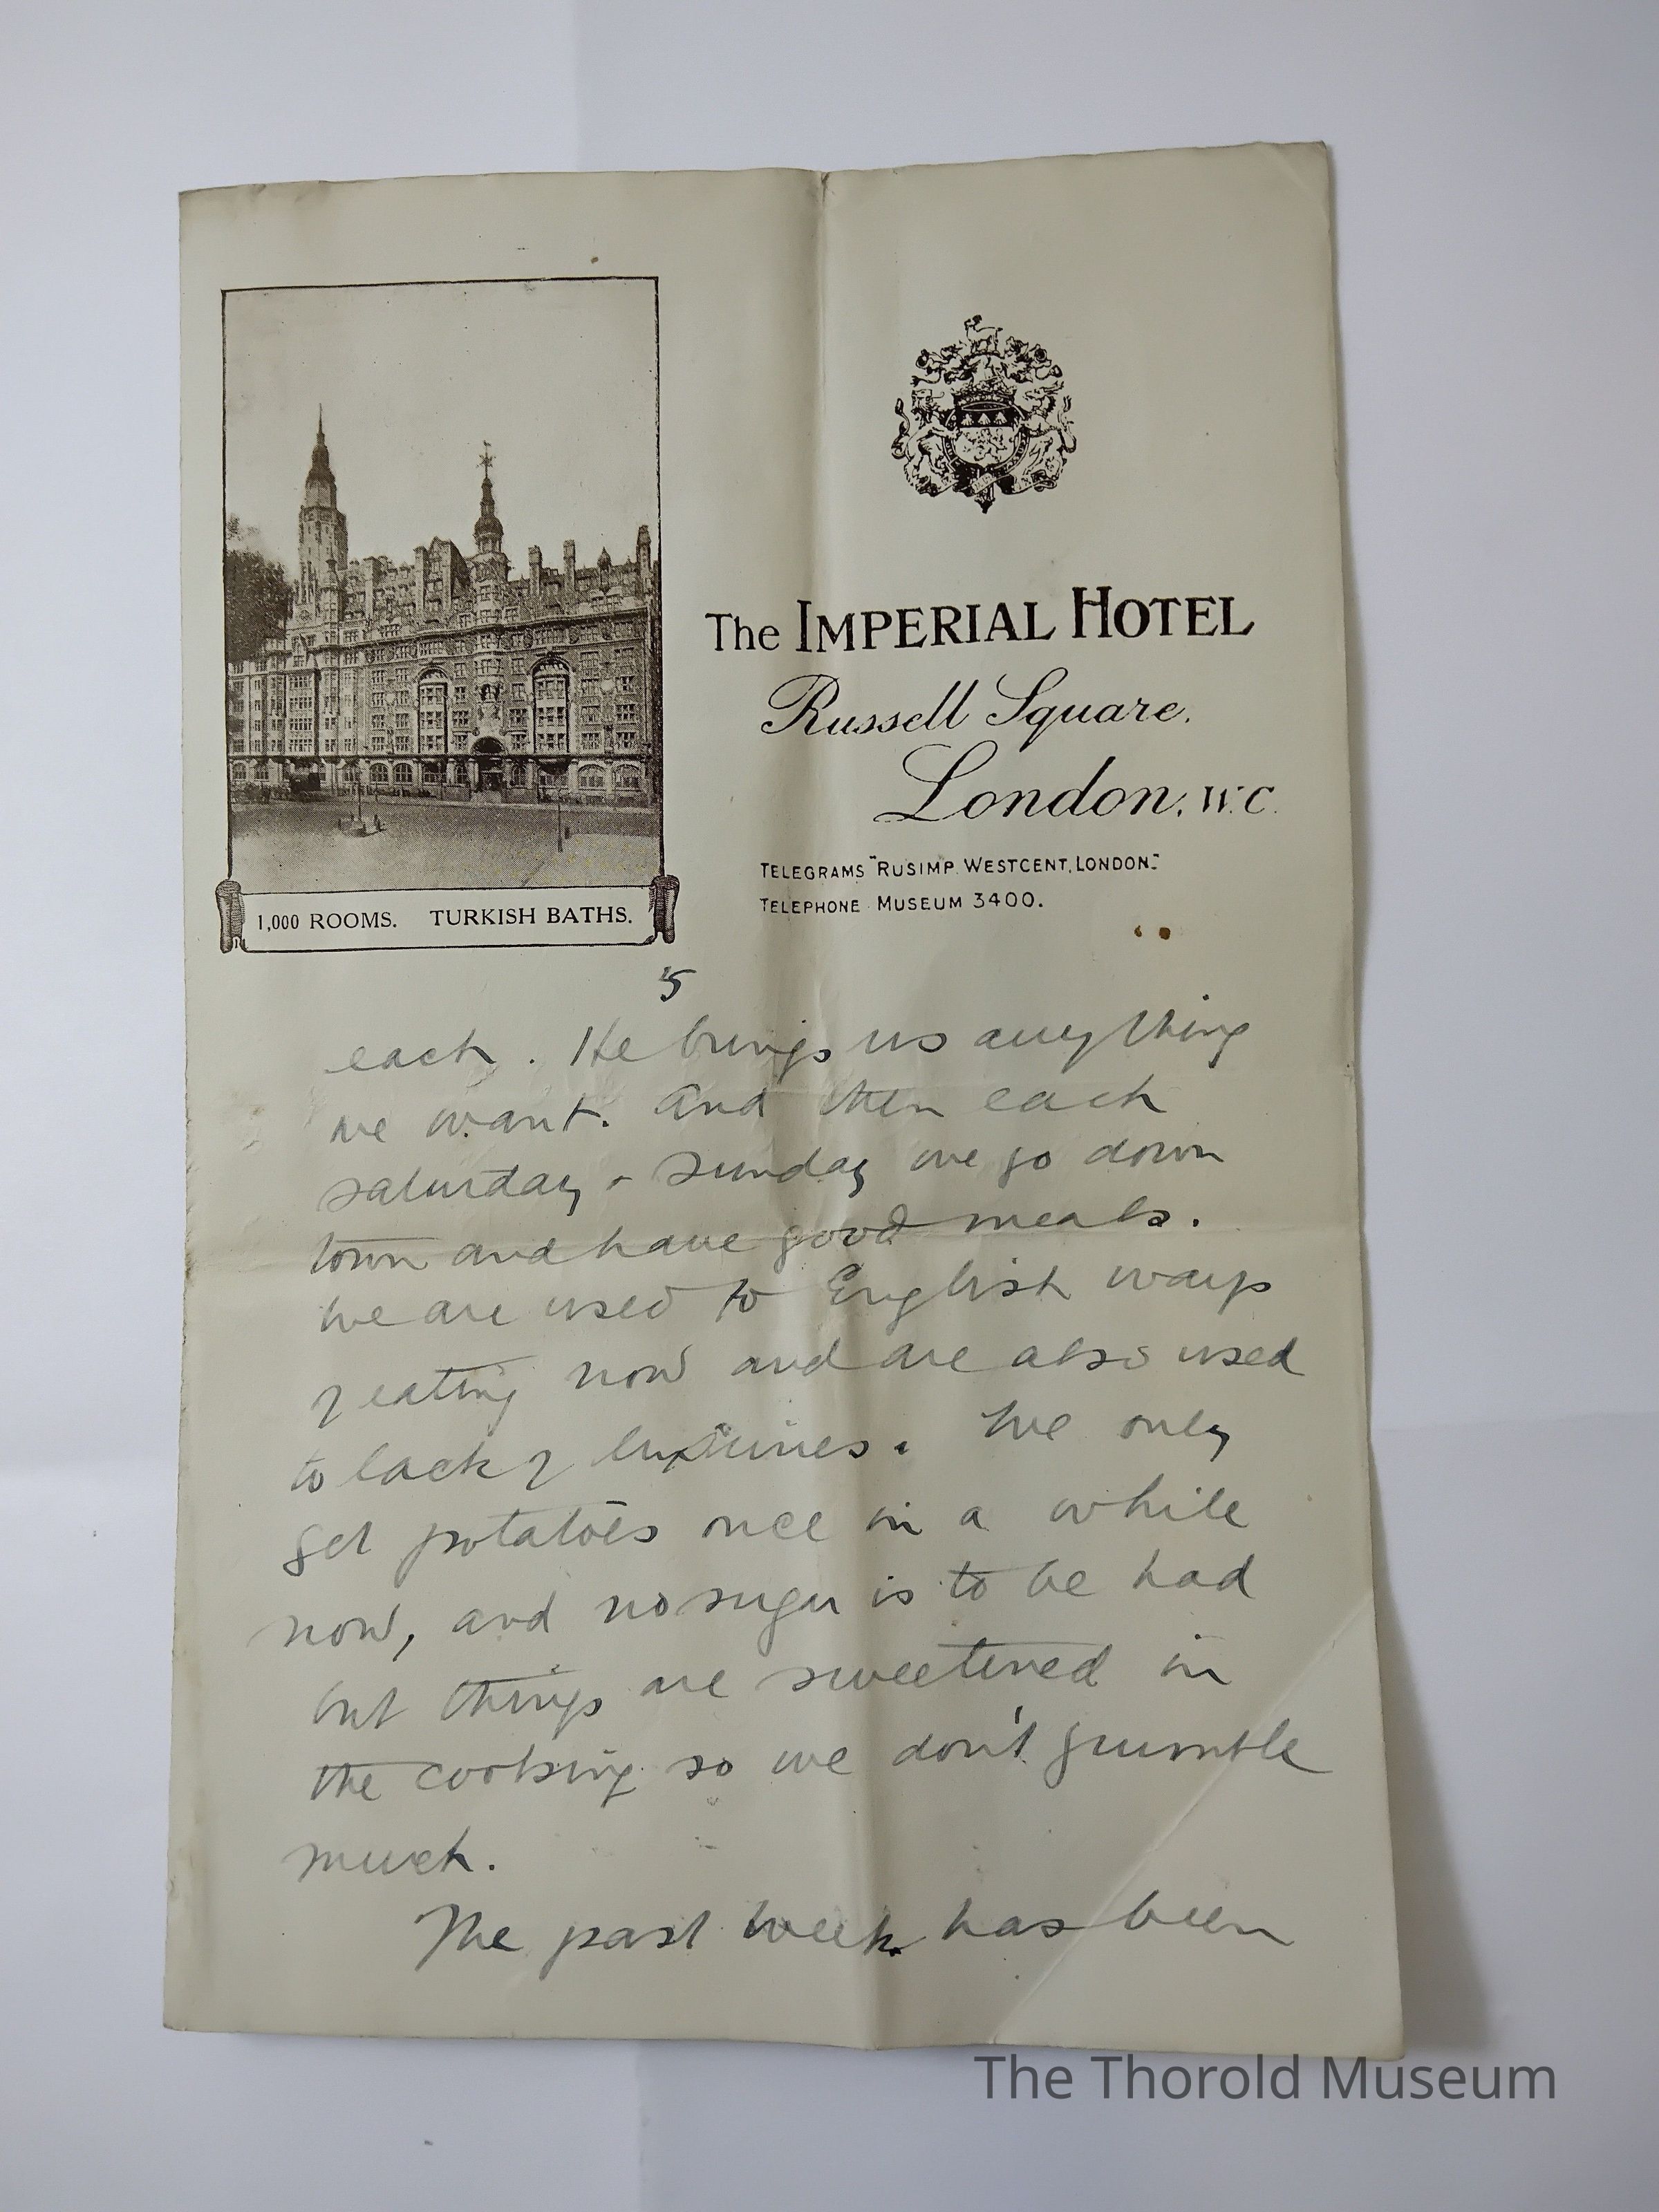 The IMPERIAL HOTEL
Russell Square.
London. W.C.
TELEGRAMS "RUSIMP. WESTCENT, LONDON."
TELEPHONE MUSEUM 3400.
1,000 ROOMS. TURKISH BATHS.
5
each. He brings us anything
we want. And then each
saturday & sunday we go down
town and have good meals.
We are used to English ways
of eating now and are also used
to lack of luxuries. We only
get potatoes once in a while
now, and no sugar is to be had
but things are sweetened in
the cooking so we don't grumble
much.
The past week has been
The Thorold Museum